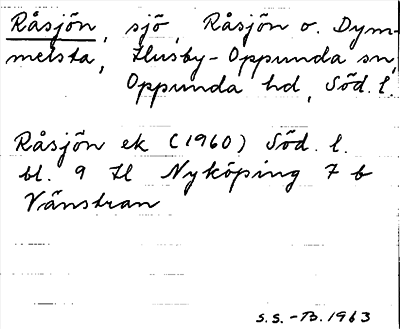 Råsjön, sjö, Råsjön o. Dym-
melsta, Husby-Oppunda sn,
Oppunda hd, Söd. l.
Råsjön ek (1960) Söd. l.
bl. 9 H Nyköping 7 b
Vänstran
S.S.-B. 1963